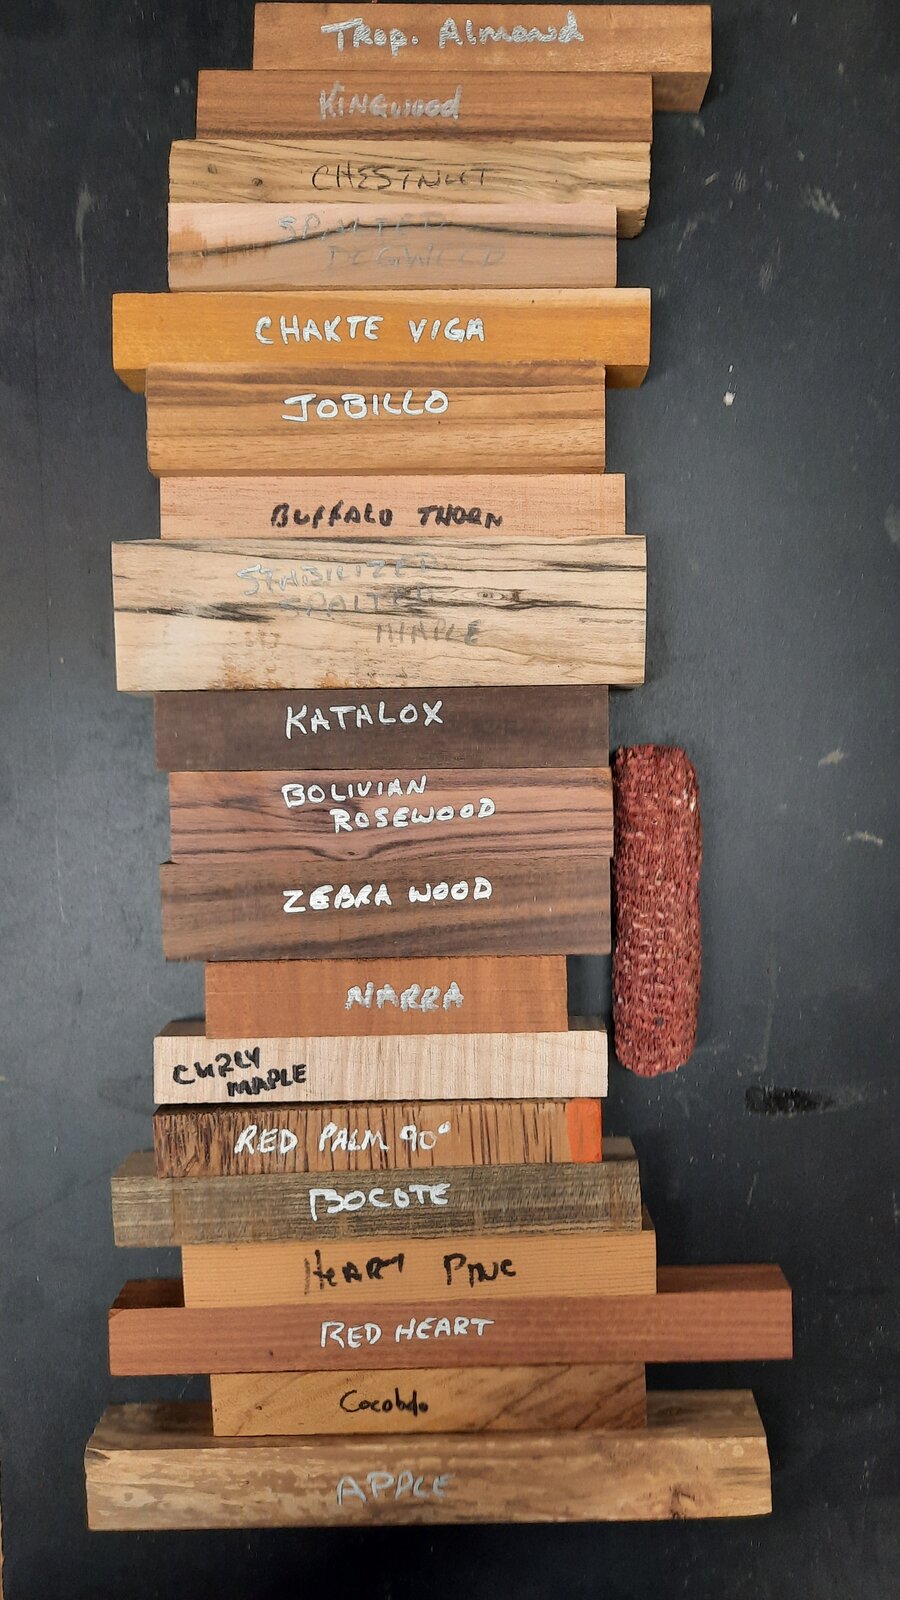 Trop. Almond
KINGWOOD
CHESTNUT
SPALTED
DOGWOOD
CHAKTE VIGA
JOBILLO
BUFFALO THORN
STABILIZED
SPALTED
MAPLE
KATALOX
BOLIVIAN
ROSEWOOD
ZEBRA WOOD
NARRA
CURLY
MAPLE
RED PALM 90°
BOCOTE
HEART PINE
RED HEART
Cocobolo
APPLE